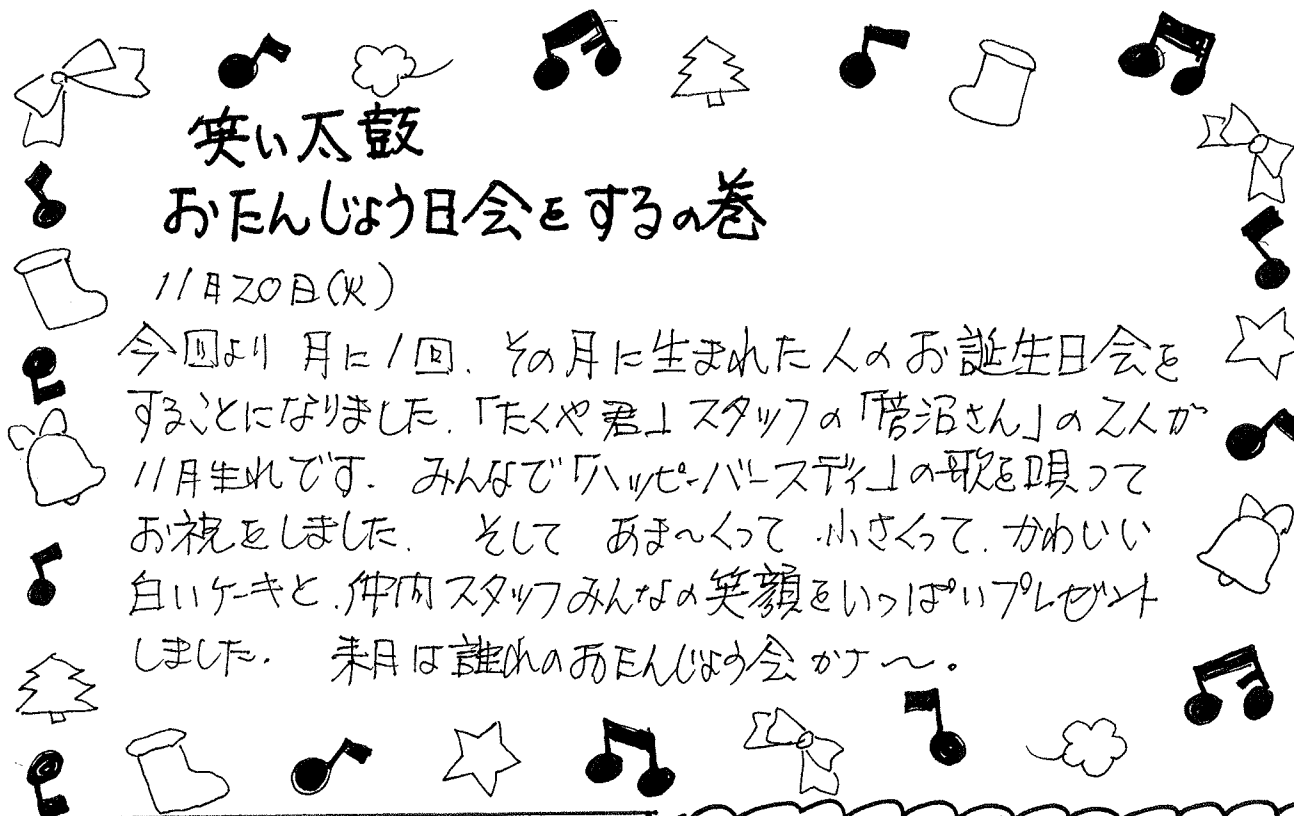 笑い太鼓
おたんじょう日会をするの巻
11月20日(火)
今回より 月に1回、その月に生まれた人のお誕生日会を
することになりました。「たくや君」スタッフの「菅沼さん」の2人が
11月生れです。 みんなで「ハッピーバースディ」の歌を唄って
お祝をしました。 そして あま〜くって 小さくって、かわいい
白いケーキと、仲間スタッフみんなの笑顔をいっぱいプレゼント
しました。 来月は誰れのおたんじょう会かナ〜。